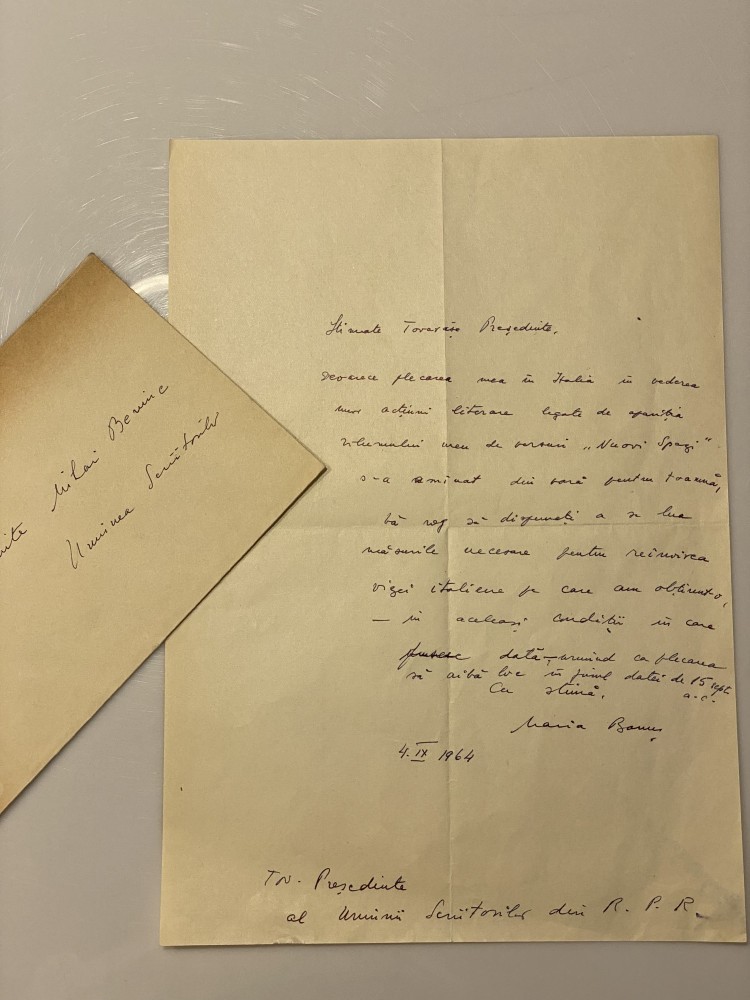 Mihai Beniuc
Uniunea Scriitorilor
Stimate Tovarășe Președinte,
Deoarece plecarea mea în Italia în vederea
unor acțiuni literare legate de apariția
volumului meu de versuri „Nuovi Spazi"
s-a amînat din vară pentru toamnă,
vă rog să dispuneți a se lua
măsurile necesare pentru reînoirea
vizei italiene pe care am obținut-o,
— în aceleași condiții în care
dată — urmînd ca plecarea
să aibă loc în jurul datei de 15 sept.
a.c.
Cu stimă,
Maria Banuș
4.IX 1964
Tov. Președinte
al Uniunii Scriitorilor din R. P. R.